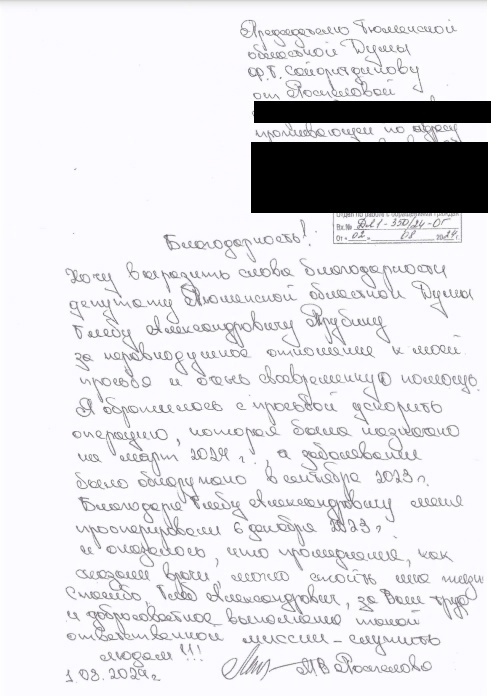 Председателю Тюменской
областной Думы
Ф.Г. Сайфитдинову
от
проживающей по адресу
Отдел по работе с обращениями граждан
Вх.№ Дл1-350/24-ОГ
От « 02 » 03 2024 г.
Благодарность!
Хочу выразить слова благодарности
депутату Тюменской областной Думы
Глебу Александровичу Трубину
за неравнодушное отношение к моей
просьбе и очень своевременную помощь.
Я обратилась с просьбой ускорить
операцию, которая была назначена
на март 2024 г., а заболевание
было обнаружено в сентябре 2023 г.
Благодаря Глебу Александровичу меня
прооперировали 6 декабря 2023 г.
и оказалось, что промедление, как
сказали врачи, может стоить мне жизни
Спасибо Глеб Александрович, за Ваш труд
и добросовестное выполнение такой
ответственной миссии – служить
людям!!!
1.03.2024 г. М В